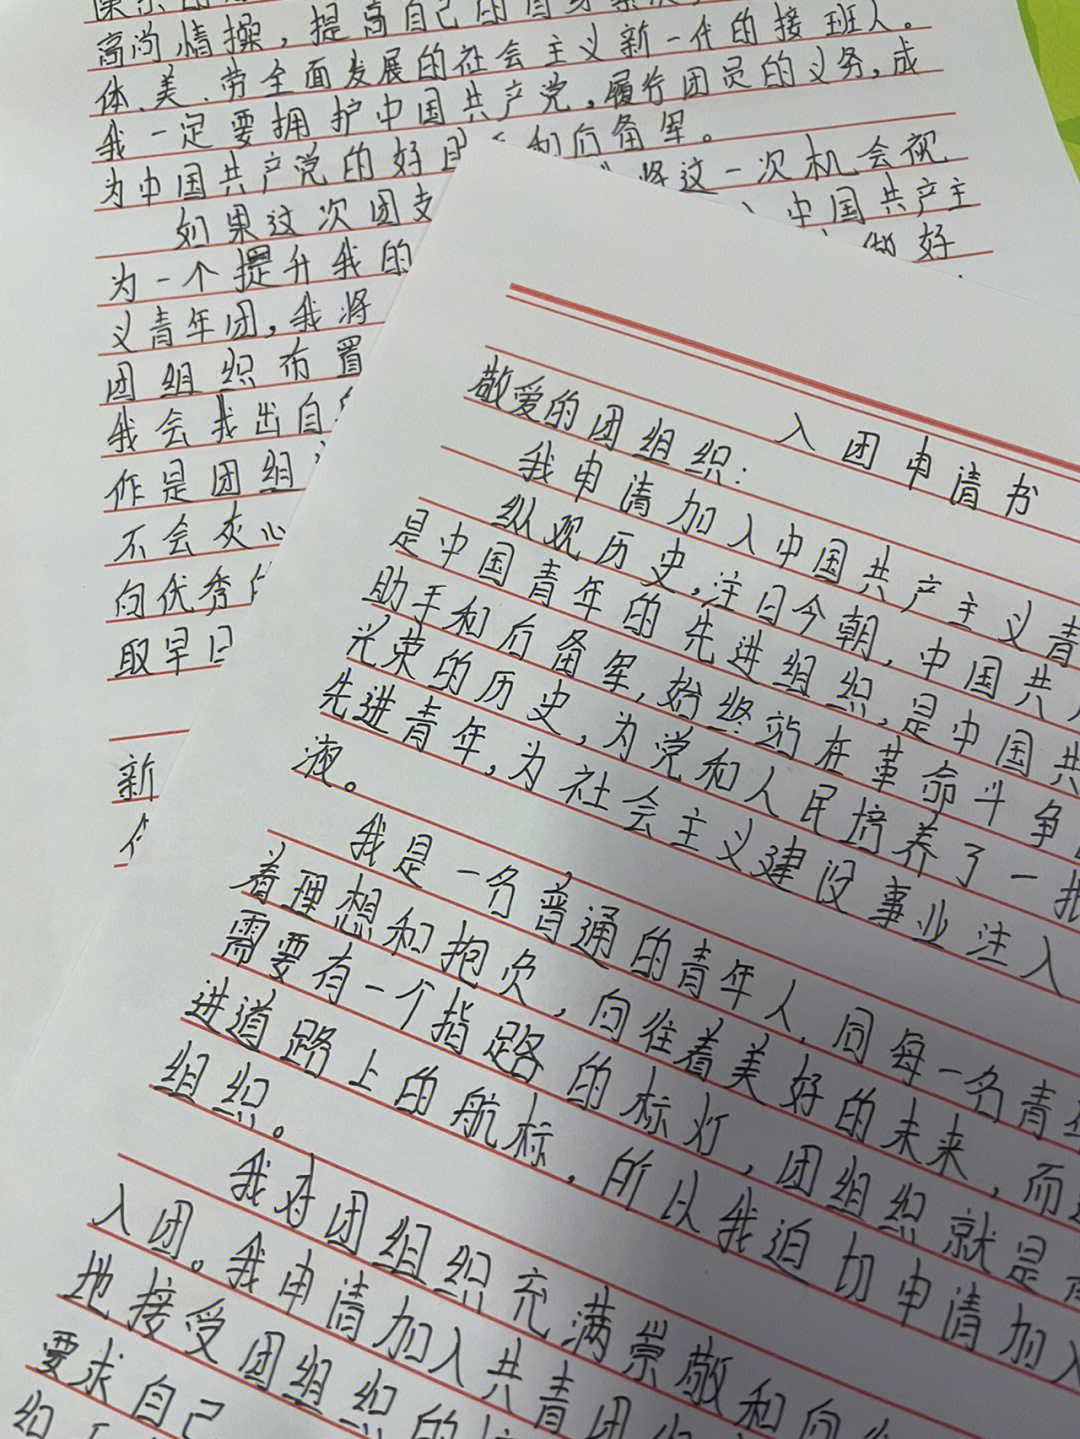 高尚情操，提高自己的自身
体、美、劳全面发展的社会主义新一代的接班人。
我一定要拥护中国共产党，履行团员的义务，成
为中国共产党的好助手和后备军。
如果这次团支 将这一次机会视
为一个提升我的 中国共产主
义青年团，我将 做好
团组织布置
我会找出自
作是团组
不会灰心
向优秀
取早日
新
入团申请书
敬爱的团组织：
我申请加入中国共产主义青
纵观历史，注日今朝，中国共
是中国青年的先进组织，是中国共
助手和后备军，始终站在革命斗争
光荣的历史，为党和人民培养了一批
先进青年，为社会主义建设事业注入
液。
我是一名普通的青年人，同每一名青
着理想和抱负，向往着美好的未来，而
需要有一个指路的标灯，团组织就是
进道路上的航标。所以我迫切申请加入
组织。
我对团组织充满崇敬和向往
入团。我申请加入共青团
地接受团组织的
要求自己